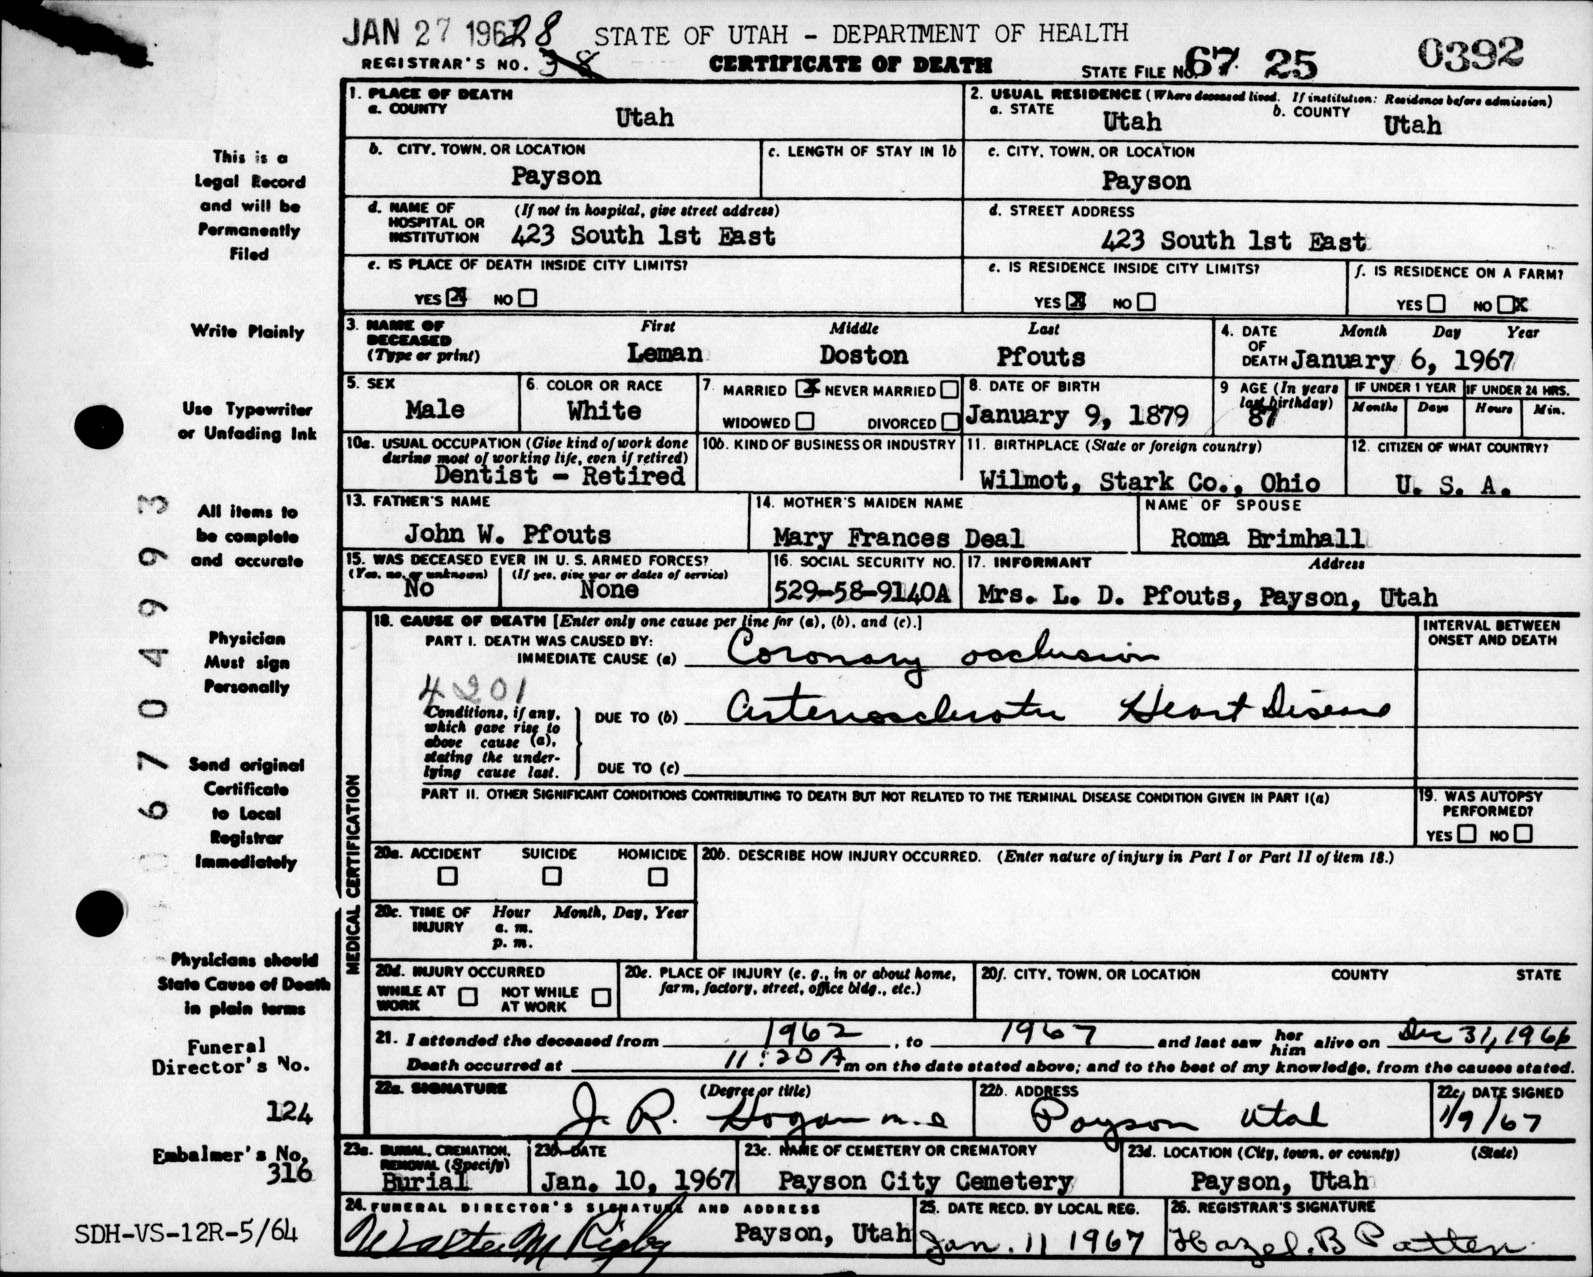 JAN 27 1967 28 STATE OF UTAH - DEPARTMENT OF HEALTH 0392
REGISTRAR'S NO. 38 CERTIFICATE OF DEATH STATE FILE NO. 67 25
1. PLACE OF DEATH
a. COUNTY
Utah
2. USUAL RESIDENCE (Where deceased lived. If institution: Residence before admission)
a. STATE Utah b. COUNTY Utah
b. CITY, TOWN, OR LOCATION
Payson
c. LENGTH OF STAY IN 1b
c. CITY, TOWN, OR LOCATION
Payson
d. NAME OF HOSPITAL OR INSTITUTION (If not in hospital, give street address)
423 South 1st East
d. STREET ADDRESS
423 South 1st East
e. IS PLACE OF DEATH INSIDE CITY LIMITS?
YES X NO
e. IS RESIDENCE INSIDE CITY LIMITS?
YES X NO
f. IS RESIDENCE ON A FARM?
YES NO X
3. NAME OF DECEASED (Type or print)
First Middle Last
Leman Doston Pfouts
4. DATE OF DEATH Month Day Year
January 6, 1967
5. SEX
Male
6. COLOR OR RACE
White
7 MARRIED X NEVER MARRIED
WIDOWED DIVORCED
8. DATE OF BIRTH
January 9, 1879
9 AGE (In years last birthday)
87
IF UNDER 1 YEAR IF UNDER 24 HRS.
Months Days Hours Min.
10a. USUAL OCCUPATION (Give kind of work done during most of working life, even if retired)
Dentist - Retired
10b. KIND OF BUSINESS OR INDUSTRY
11. BIRTHPLACE (State or foreign country)
Wilmot, Stark Co., Ohio
12. CITIZEN OF WHAT COUNTRY?
U. S. A.
13. FATHER'S NAME
John W. Pfouts
14. MOTHER'S MAIDEN NAME
Mary Frances Deal
NAME OF SPOUSE
Roma Brimhall
15. WAS DECEASED EVER IN U. S. ARMED FORCES?
(Yes, no, or unknown) (If yes, give war or dates of service)
No None
16. SOCIAL SECURITY NO.
529-58-9140A
17. INFORMANT Address
Mrs. L. D. Pfouts, Payson, Utah
18. CAUSE OF DEATH [Enter only one cause per line for (a), (b), and (c).]
INTERVAL BETWEEN ONSET AND DEATH
PART I. DEATH WAS CAUSED BY:
IMMEDIATE CAUSE (a) Coronary occlusion
4201
Conditions, if any, which gave rise to above cause (a), stating the underlying cause last.
DUE TO (b) Arteriosclerotic Heart Disease
DUE TO (c)
PART II. OTHER SIGNIFICANT CONDITIONS CONTRIBUTING TO DEATH BUT NOT RELATED TO THE TERMINAL DISEASE CONDITION GIVEN IN PART I(a)
19. WAS AUTOPSY PERFORMED?
YES NO
MEDICAL CERTIFICATION
20a. ACCIDENT SUICIDE HOMICIDE
20b. DESCRIBE HOW INJURY OCCURRED. (Enter nature of injury in Part I or Part II of item 18.)
20c. TIME OF INJURY Hour Month, Day, Year
a. m.
p. m.
20d. INJURY OCCURRED
WHILE AT WORK NOT WHILE AT WORK
20e. PLACE OF INJURY (e. g., in or about home, farm, factory, street, office bldg., etc.)
20f. CITY, TOWN, OR LOCATION COUNTY STATE
21. I attended the deceased from 1962, to 1967 and last saw her him alive on Dec 31, 1966
Death occurred at 11:20 A m on the date stated above; and to the best of my knowledge, from the causes stated.
22a. SIGNATURE (Degree or title)
J. R. Hogan M.D
22b. ADDRESS
Payson Utah
22c. DATE SIGNED
1/9/67
23a. BURIAL, CREMATION, REMOVAL (Specify)
Burial
23b. DATE
Jan. 10, 1967
23c. NAME OF CEMETERY OR CREMATORY
Payson City Cemetery
23d. LOCATION (City, town, or county) (State)
Payson, Utah
24. FUNERAL DIRECTOR'S SIGNATURE AND ADDRESS
Walter M Rigby Payson, Utah
25. DATE RECD. BY LOCAL REG.
Jan. 11 1967
26. REGISTRAR'S SIGNATURE
Hazel. B Patten
This is a
Legal Record
and will be
Permanently
Filed
Write Plainly
Use Typewriter
or Unfading Ink
All items to
be complete
and accurate
Physician
Must sign
Personally
Send original
Certificate
to Local
Registrar
Immediately
Physicians should
State Cause of Death
in plain terms
Funeral
Director's No.
124
Embalmer's No.
316
SDH-VS-12R-5/64
06704993